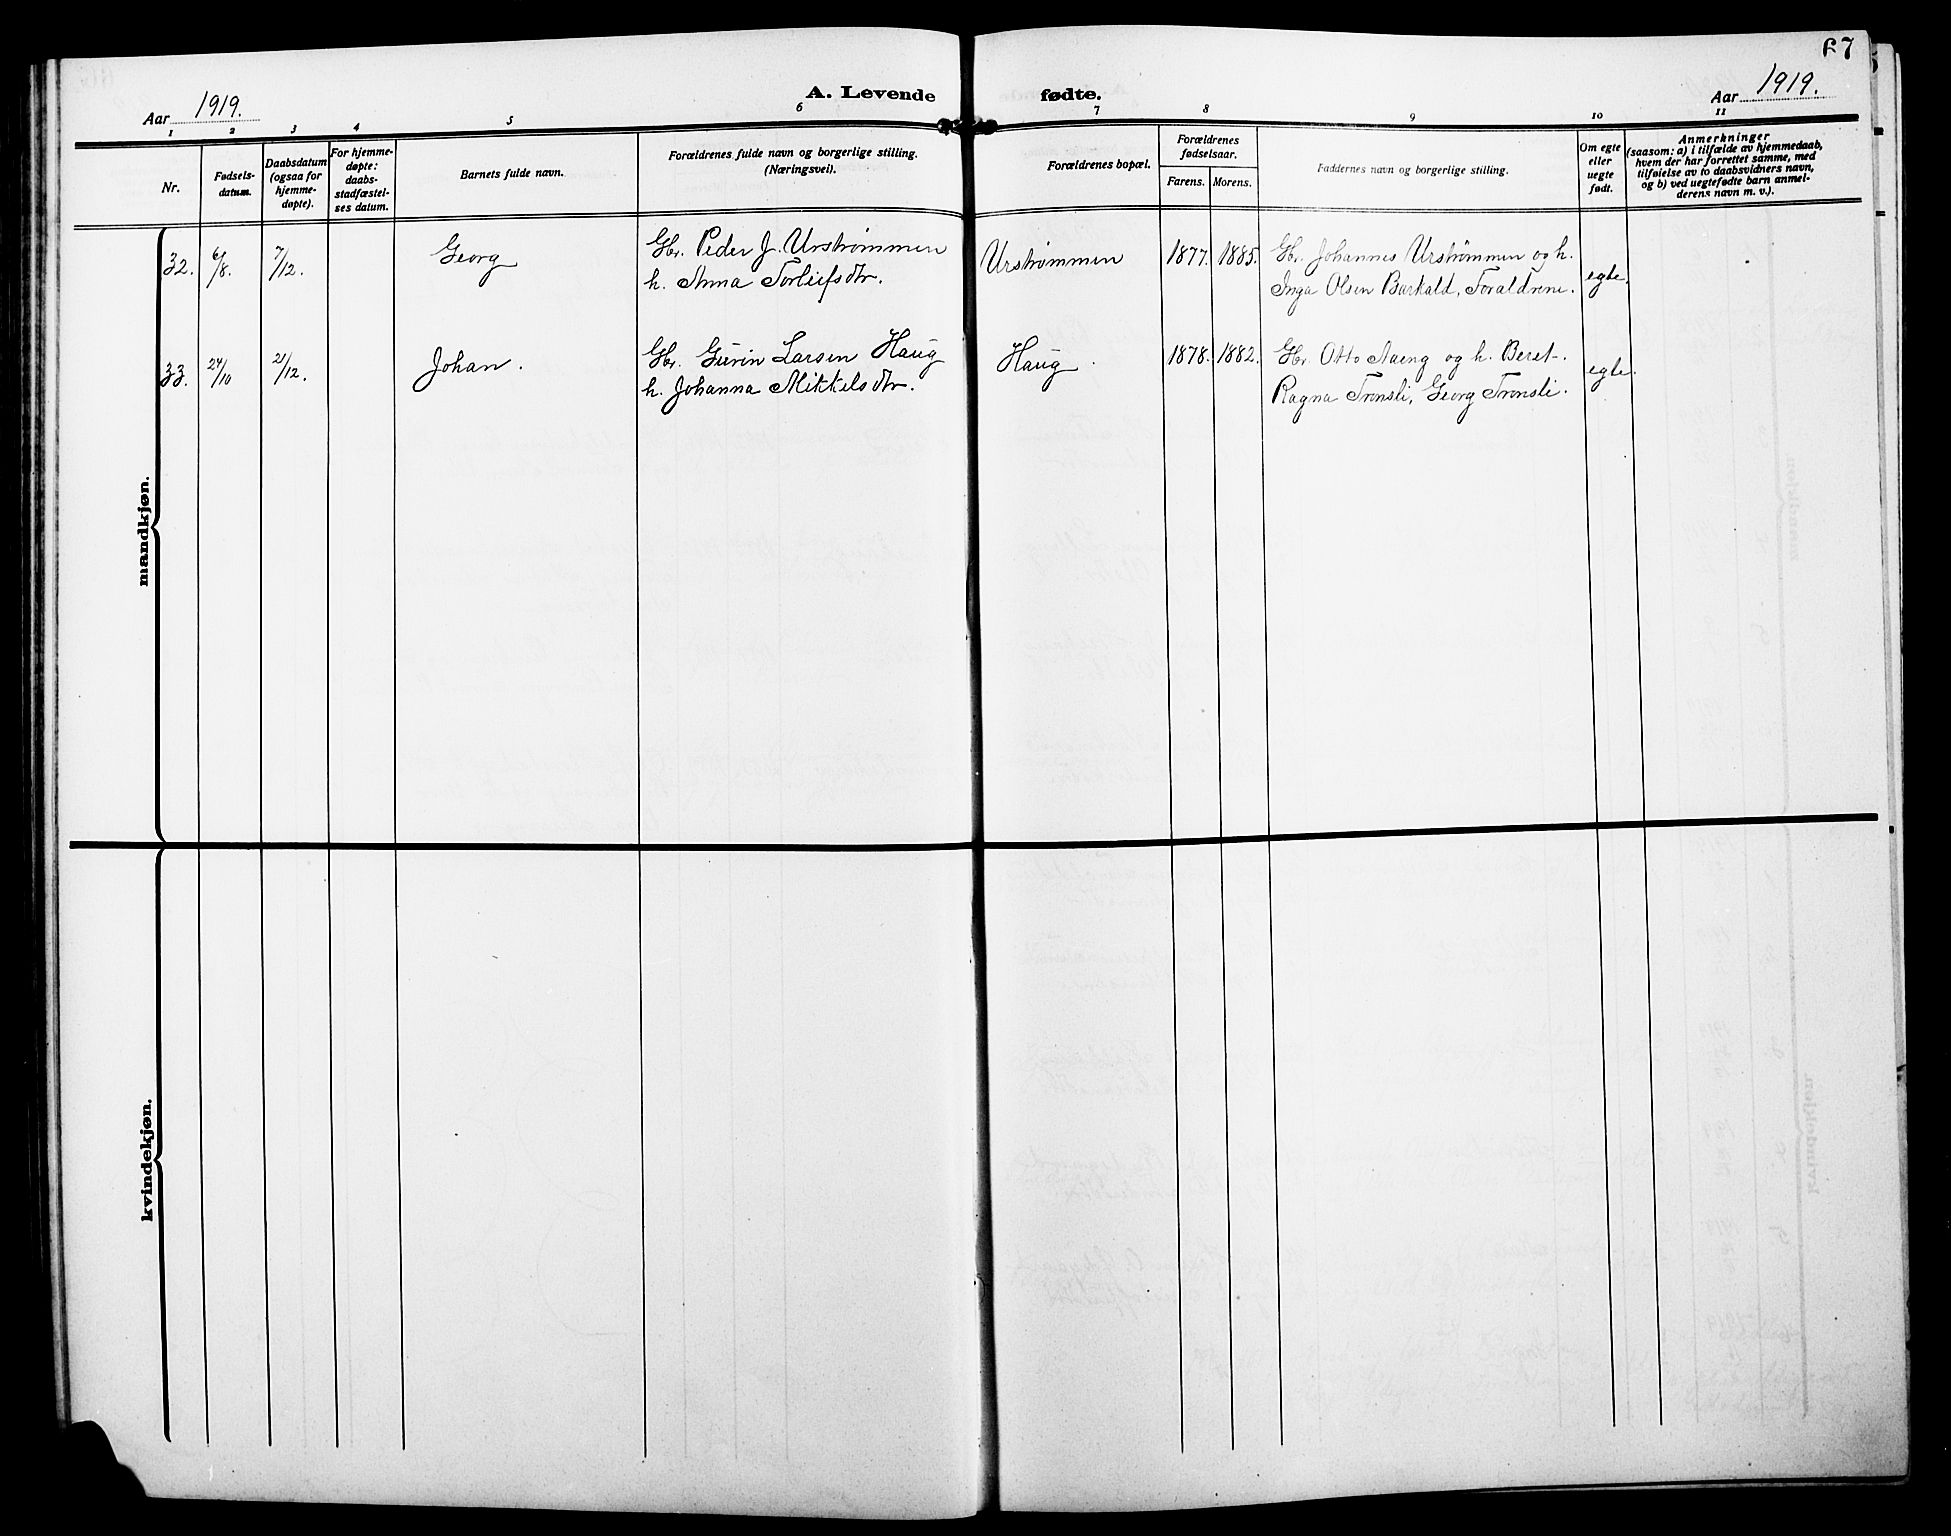 67
Aar 1919.
A. Levende fødte.
Aar 1919.
1 2 3 4 5 6 7 8 9 10 11
Nr.
Fødsels-
datum.
Daabsdatum
(ogsaa for
hjemme-
døpte).
For hjemme-
døpte:
daabs-
stadfæstel-
ses datum.
Barnets fulde navn.
Forældrenes fulde navn og borgerlige stilling.
(Næringsvei).
Forældrenes bopæl.
Forældrenes
fødselsaar.
Farens. Morens.
Faddernes navn og borgerlige stilling.
Om egte
eller
uegte
født.
Anmerkninger
(saasom: a) i tilfælde av hjemmedaab,
hvem der har forrettet samme, med
tilføielse av to daabsvidners navn,
og b) ved uegtefødte barn anmel-
derens navn m. v.).
mandkjøn.
32. 6/8. 7/12. Georg Gbr. Peder J. Urstrømmen Urstrømmen 1877. 1885. Gbr. Johannes Urstrømmen og h.
h. Anna Torleifsdtr. Inga Olsen Barkald, Forældrene. egte.
33. 24/10 21/12. Johan. Gbr. Larsen Haug Haug 1878. 1882. Gbr. Otto Aaeng og h. Beret.
h. Johanna Mikkelsdtr. Ragna Tronsli, Georg Tronsli. egte.
kvindekjøn.